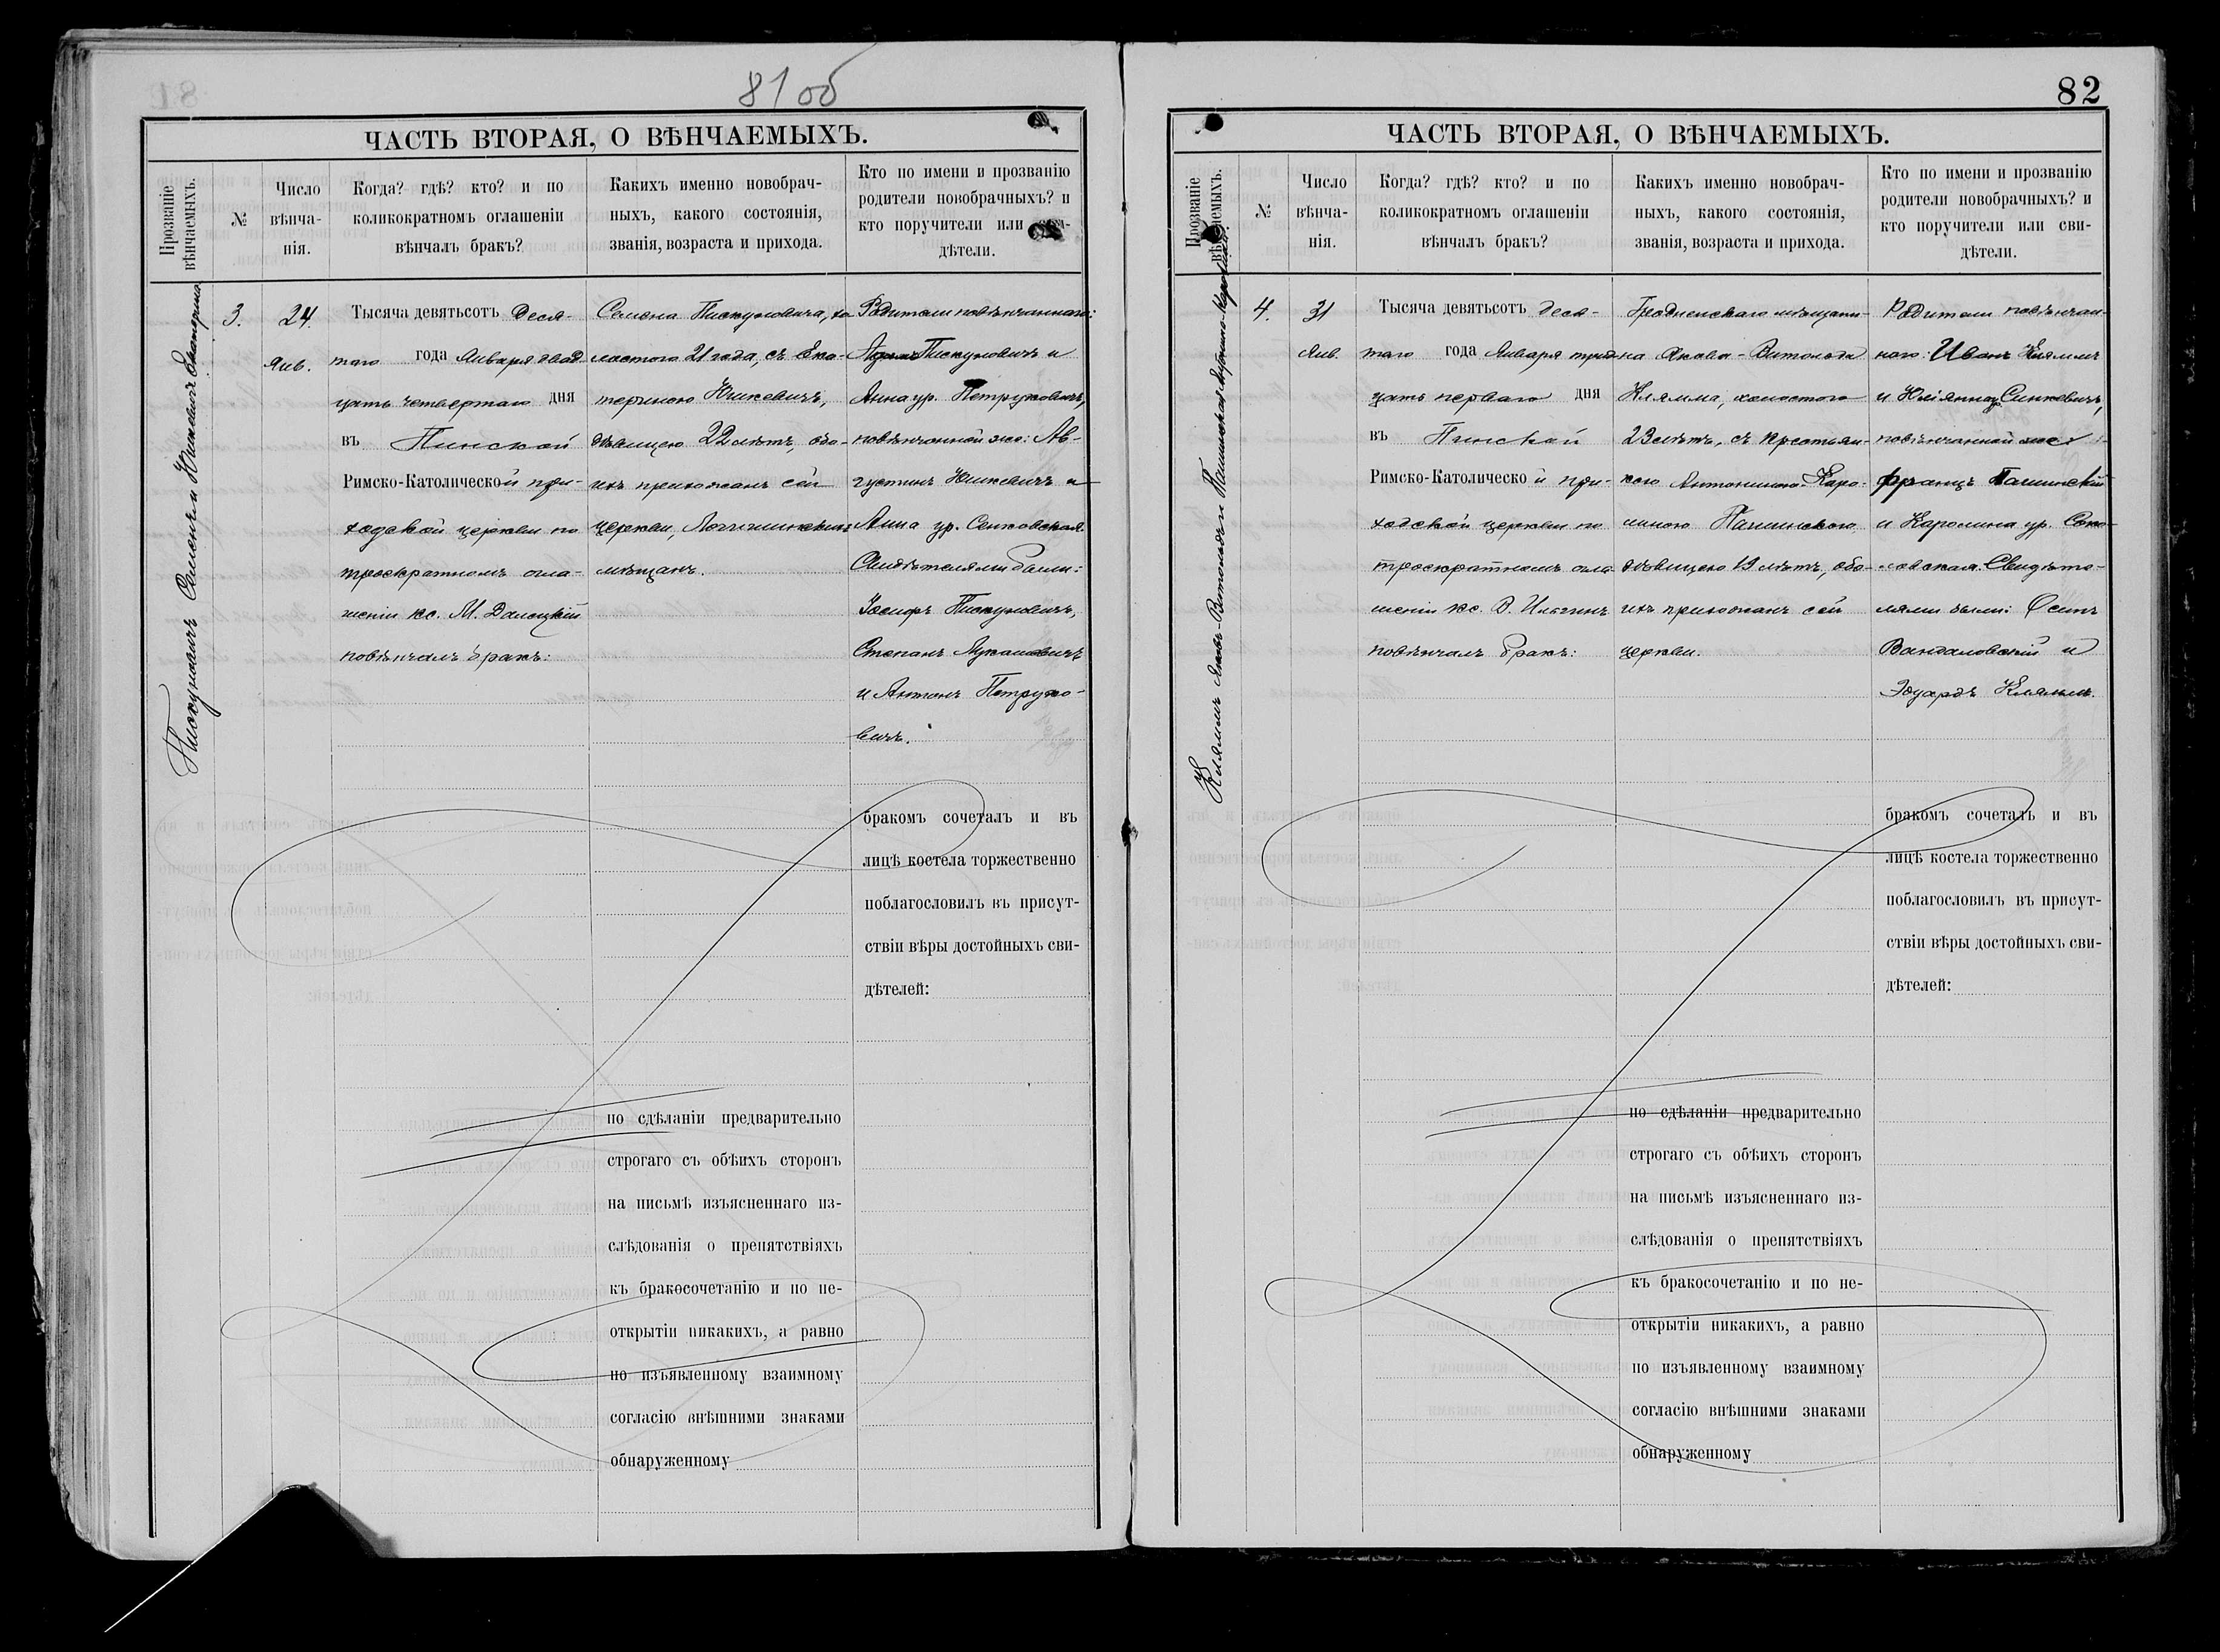 81 об
ЧАСТЬ ВТОРАЯ, О ВѢНЧАЕМЫХЪ.
Прозваніе
вѣнчаемыхъ.
№
Число
вѣнча-
нія.
Когда? гдѣ? кто? и по
коликократномъ оглашеніи
вѣнчалъ бракъ?
Какихъ именно новобрач-
ныхъ, какого состоянія,
званія, возраста и прихода.
Кто по имени и прозванію
родители новобрачныхъ? и
кто поручители или
дѣтели.
Пискуновичъ Семенъ и Юшкевичъ Екатерина
3.
24.
Янв.
Тысяча девятьсотъ Деся-
таго года Января двад
цать четвертаго дня
въ Пинской
Римско-Католической при-
ходской церкви по
троекратномъ огла-
шеніи кс. М. Далецкій
повѣнчалъ бракъ:
Семена Пискуновича, хо
лостого 21 года, съ Ека-
териною Юшкевичъ,
дѣвицею 22 лѣтъ, обо-
ихъ прихожанъ сей
церкви, Логишинскихъ
мѣщанъ.
Родители повѣнчаннаго:
Адамъ Пискуновичъ и
Анна ур. Петруковичъ,
повѣнчанной же: Ав-
густинъ Юшкевичъ и
Анна ур. Сенковская.
Свидѣтелями были:
Іосифъ Пискуновичъ,
Степанъ Лукашевичъ
и Антонъ Петруко-
вичъ.
бракомъ сочеталъ и въ
лицѣ костела торжественно
поблагословилъ въ присут-
ствіи вѣры достойныхъ сви-
дѣтелей:
по сдѣланіи предварительно
строгаго съ обѣихъ сторонъ
на письмѣ изъясненнаго из-
слѣдованія о препятствіяхъ
къ бракосочетанію и по не-
открытіи никакихъ, а равно
по изъявленному взаимному
согласію внѣшними знаками
обнаруженному
82
ЧАСТЬ ВТОРАЯ, О ВѢНЧАЕМЫХЪ.
Прозваніе
вѣнчаемыхъ.
№
Число
вѣнча-
нія.
Когда? гдѣ? кто? и по
коликократномъ оглашеніи
вѣнчалъ бракъ?
Какихъ именно новобрач-
ныхъ, какого состоянія,
званія, возраста и прихода.
Кто по имени и прозванію
родители новобрачныхъ? и
кто поручители или сви-
дѣтели.
Кляммъ Яковъ-Витольдъ и
4.
31
Янв.
Тысяча девятьсотъ деся-
таго года Января трид
цать перваго дня
въ Пинской
Римско-Католической при-
ходской церкви по
троекратномъ огла
шеніи кс. В. Ильгинъ
повѣнчалъ бракъ:
Гродненскаго мѣщани-
на Якова-Витольда
Клямма, холостого
23 лѣтъ, съ крестьян-
кою Антониною-Каро-
линою
дѣвицею 19 лѣтъ, обо-
ихъ прихожанъ сей
церкви.
Родители повѣнчан-
наго: Иванъ Кляммъ
и Юліянна Синкевичъ,
повѣнчанной же:
Францъ
и Каролина ур. Соко-
ловская. Свидѣте-
лями были: Осипъ
Вандаловскій и
Эдуардъ Клямъ.
бракомъ сочеталъ и въ
лицѣ костела торжественно
поблагословилъ въ присут-
ствіи вѣры достойныхъ сви-
дѣтелей:
по сдѣланіи предварительно
строгаго съ обѣихъ сторонъ
на письмѣ изъясненнаго из-
слѣдованія о препятствіяхъ
къ бракосочетанію и по не-
открытіи никакихъ, а равно
по изъявленному взаимному
согласію внѣшними знаками
обнаруженному